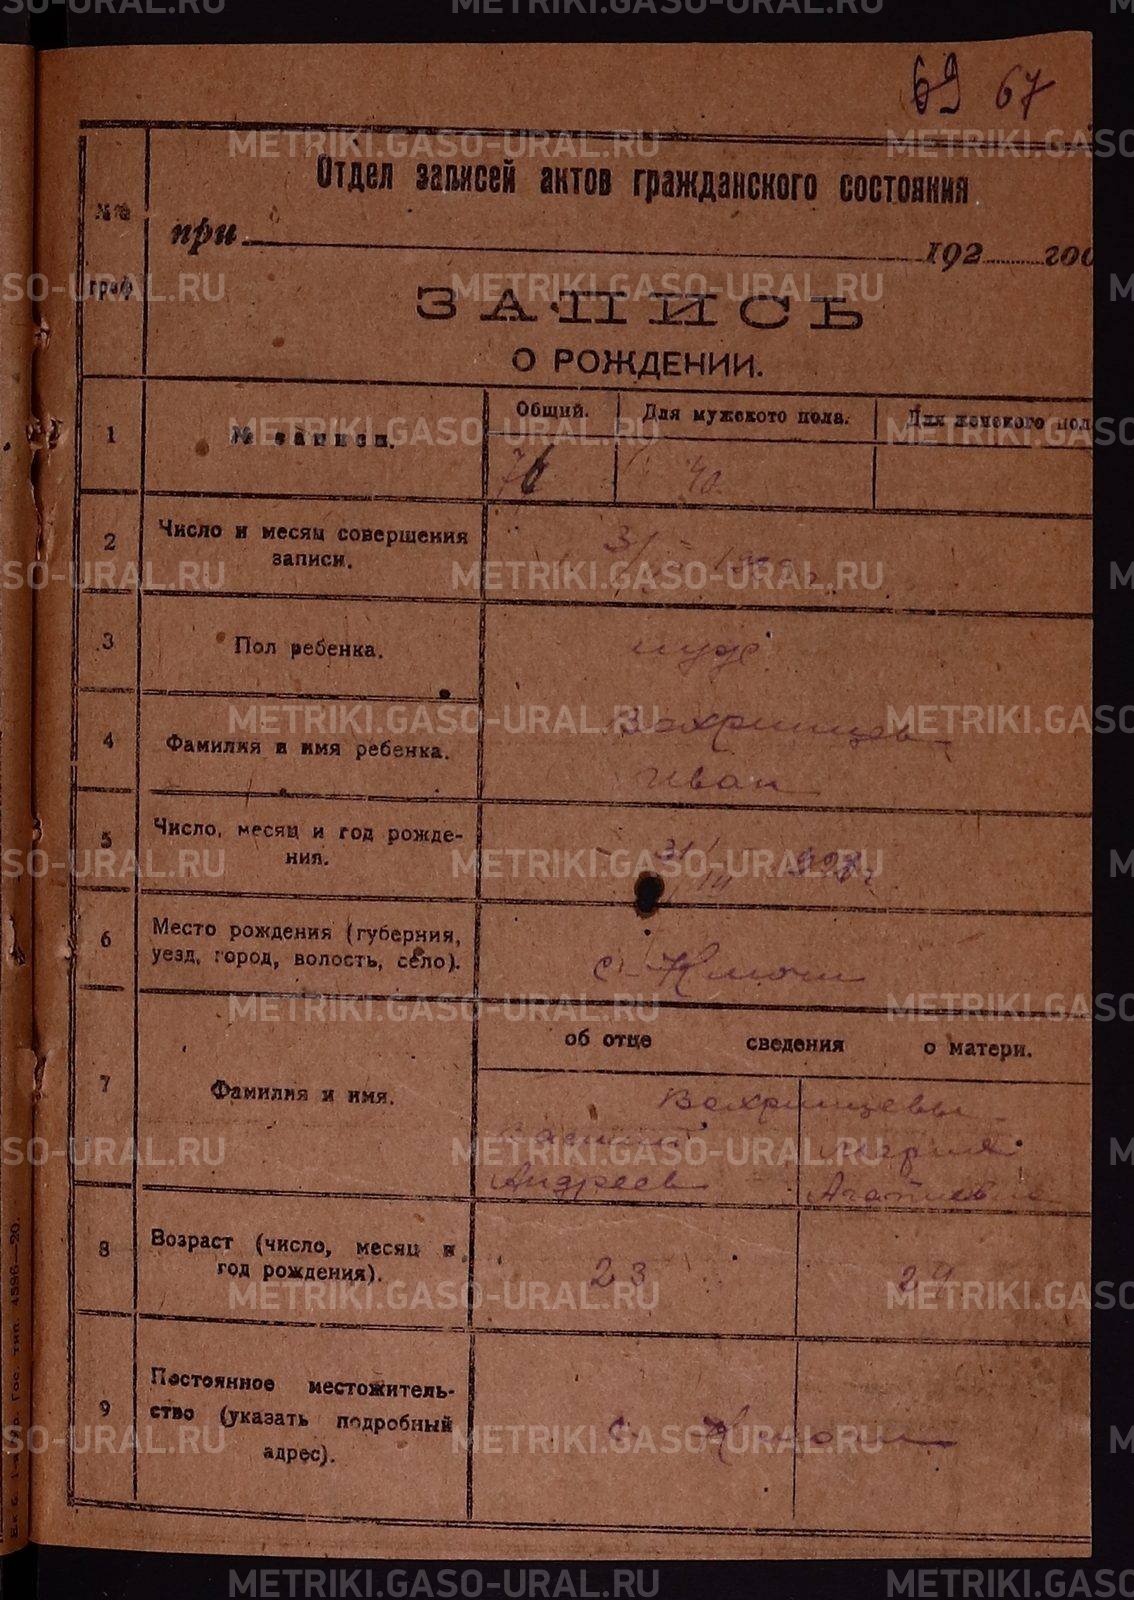 69 67
Отдел записей актов гражданского состояния
№№
при 192 год
граф
ЗАПИСЬ
О РОЖДЕНИИ.
1 № записи. Общий. Для мужского пола. Для женского пол
40
2 Число и месяц совершения
записи.
3 Пол ребенка. муж
4 Фамилия и имя ребенка. Вахрушев
Иван
5 Число, месяц и год рожде-
ния.
6 Место рождения (губерния,
уезд, город, волость, село). с. Ключи
об отце сведения о матери.
7 Фамилия и имя.
Мария
Андреев
8 Возраст (число, месяц и
год рождения). 23 24
9 Постоянное местожитель-
ство (указать подробный
адрес). с. Ключи
METRIKI.GASO-URAL.RU